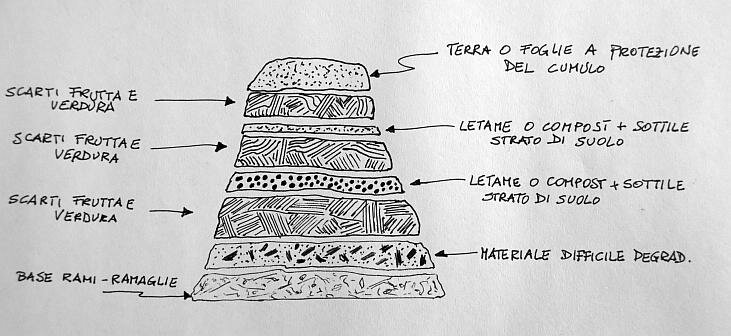 TERRA O FOGLIE A PROTEZIONE
DEL CUMULO
SCARTI FRUTTA E
VERDURA
LETAME O COMPOST + SOTTILE
STRATO DI SUOLO
SCARTI FRUTTA E
VERDURA
LETAME O COMPOST + SOTTILE
STRATO DI SUOLO
SCARTI FRUTTA E
VERDURA
MATERIALE DIFFICILE DEGRAD.
BASE RAMI - RAMAGLIE